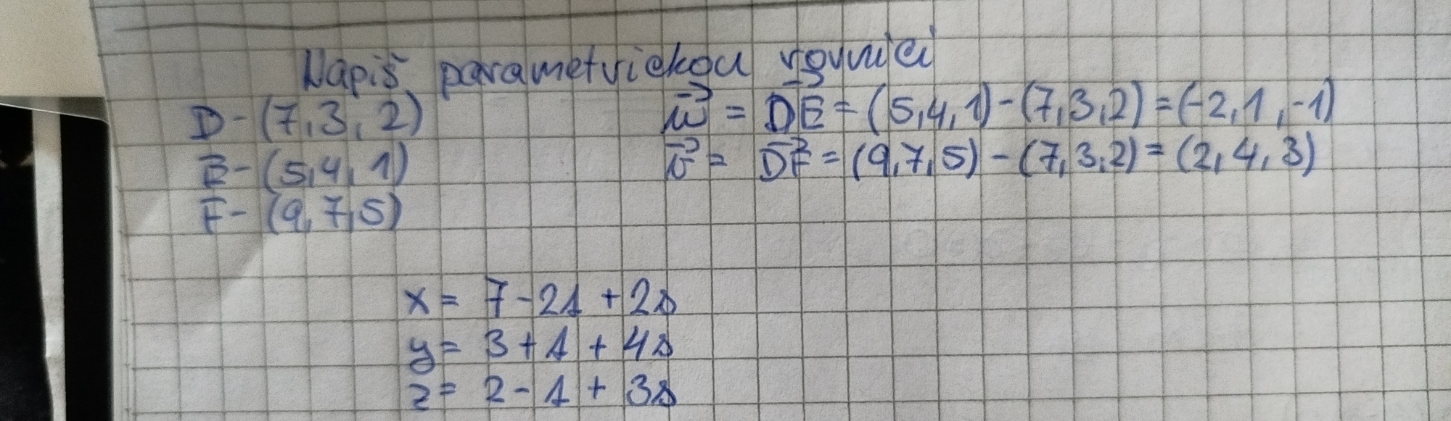 Napiš parametrickou rovnici
D - (7,3,2)
E - (5,4,1)
F - (9,7,5)
u⃗ = D⃗E = (5,4,1) - (7,3,2) = (-2,1,-1)
v⃗ = D⃗F = (9,7,5) - (7,3,2) = (2,4,3)
x = 7 - 2t + 2s
y = 3 + t + 4s
z = 2 - t + 3s